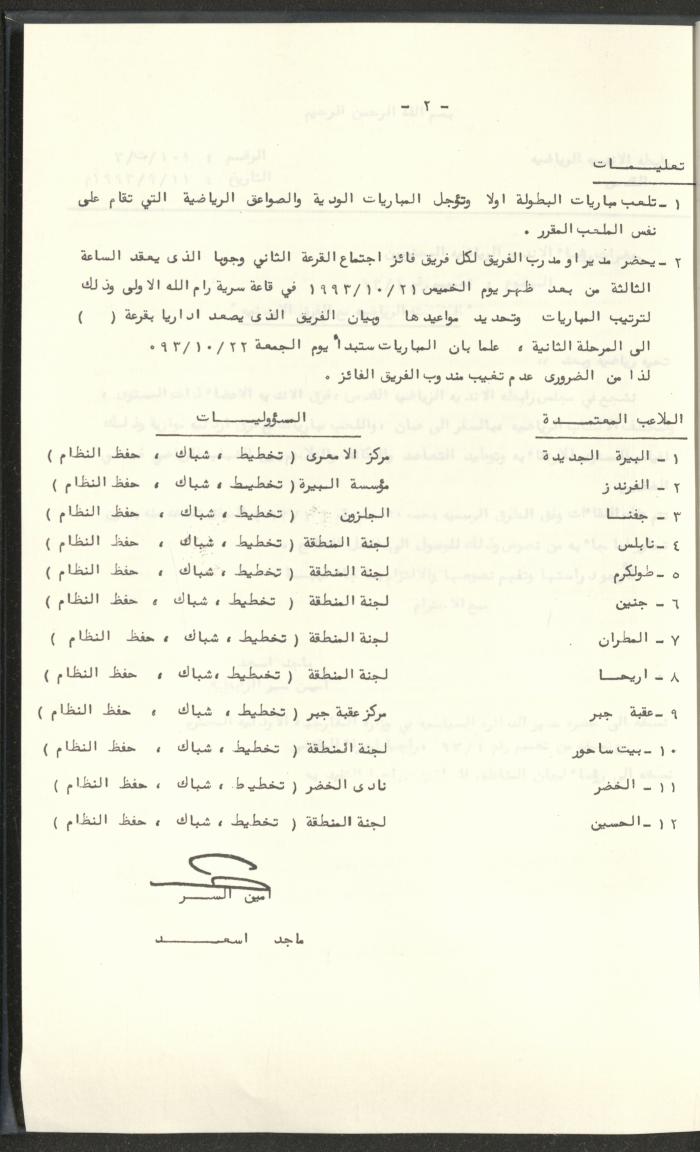 - ٢ -
تعليمــات
١ - تلعب مباريات البطولة اولا وتؤجل المباريات الودية والصواعق الرياضية التي تقام على
نفس الملعب المقرر .
٢ - يحضر مدير او مدرب الفريق لكل فريق فائز اجتماع القرعة الثاني وجوبا الذى يعقد الساعة
الثالثة من بعد ظهر يوم الخميس ١٩٩٣/١٠/٢١ في قاعة سرية رام الله الاولى وذلك
لترتيب المباريات وتحديد مواعيدها وبيان الفريق الذى يصعد اداريا بقرعة ( )
الى المرحلة الثانية ، علما بان المباريات ستبدأ يوم الجمعة ٩٣/١٠/٢٢ ٠
لذا من الضرورى عدم تغيب مندوب الفريق الفائز .
الملاعب المعتمــدة المسؤوليــات
١ - البيرة الجديدة مركز الامعرى ( تخطيط ، شباك ، حفظ النظام )
٢ - الفرندز مؤسسة البيرة ( تخطيط ، شباك ، حفظ النظام )
٣ - جفنــا الجلزون ( تخطيط ، شباك ، حفظ النظام )
٤ - نابلس لجنة المنطقة ( تخطيط ، شباك ، حفظ النظام )
٥ - طولكرم لجنة المنطقة ( تخطيط ، شباك ، حفظ النظام )
٦ - جنين لجنة المنطقة ( تخطيط ، شباك ، حفظ النظام )
٧ - المطران لجنة المنطقة ( تخطيط ، شباك ، حفظ النظام )
٨ - اريحــا لجنة المنطقة ( تخطيط ، شباك ، حفظ النظام )
٩ - عقبة جبر مركز عقبة جبر ( تخطيط ، شباك ، حفظ النظام )
١٠ - بيت ساحور لجنة المنطقة ( تخطيط ، شباك ، حفظ النظام )
١١ - الخضر نادى الخضر ( تخطيط ، شباك ، حفظ النظام )
١٢ - الحسين لجنة المنطقة ( تخطيط ، شباك ، حفظ النظام )
امين الســر
ماجد اسعــد